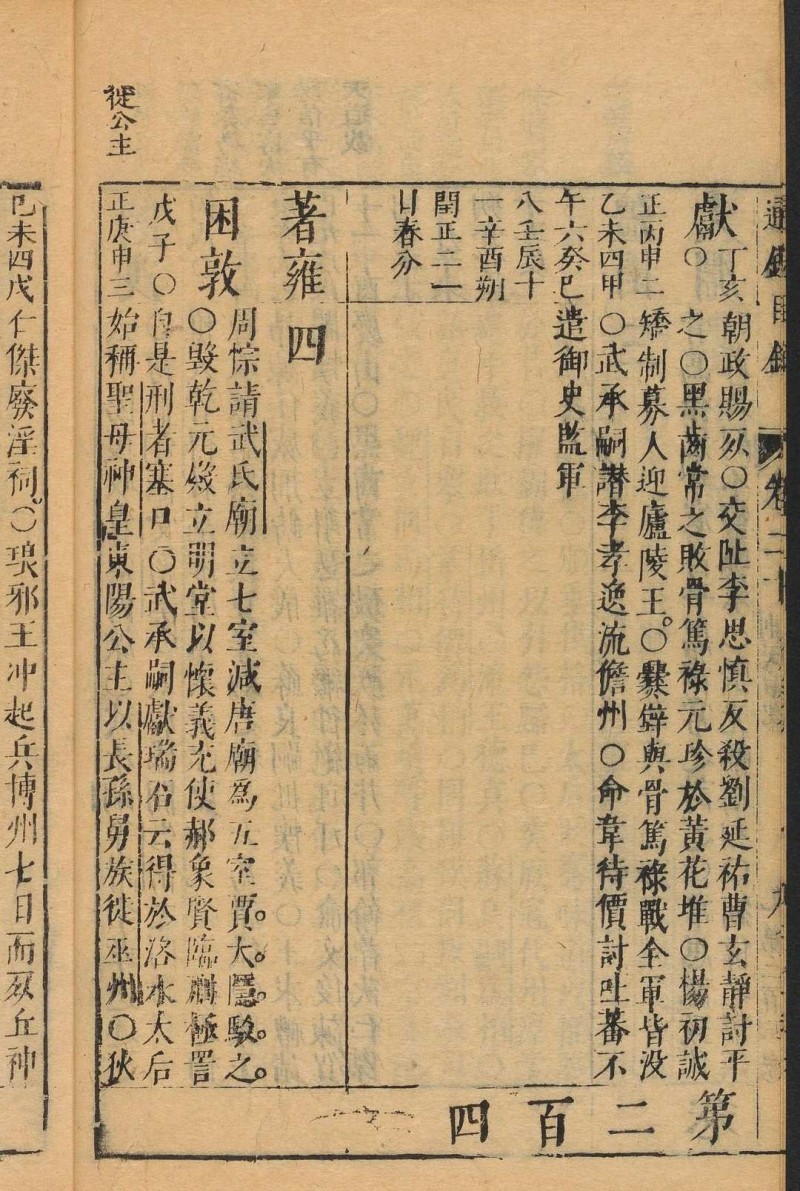 通鑑目錄 卷二十
獻 丁亥 朝政賜死〇交阯李思慎反殺劉延祐曹玄靜討平
〇 之〇黑齒常之敗骨篤祿元珍於黃花堆〇楊初誠
正丙申二 矯制募人迎廬陵王。〇爨辟與骨篤祿戰全軍皆没
乙未四甲 〇武承嗣譖李孝逸流儋州〇命韋待價討吐蕃不
午六癸巳 遣御史監軍
八壬辰十
一辛酉朔
閏正二一
日春分
第二百四
著雍 四
周悰請武氏廟立七室減唐廟爲五室賈。大。隱。駮。之。
困敦 〇毀乾元殿立明堂以懷義充使郝象賢臨刑極詈
戊子〇 自是刑者塞口〇武承嗣獻瑞石云得於洛水太后
徙公主
正庚申三 始稱聖母神皇東陽公主以長孫舅族徙巫州〇狄
己未四戊 仁傑廢淫祠。〇琅邪王冲起兵博州七日而死丘神